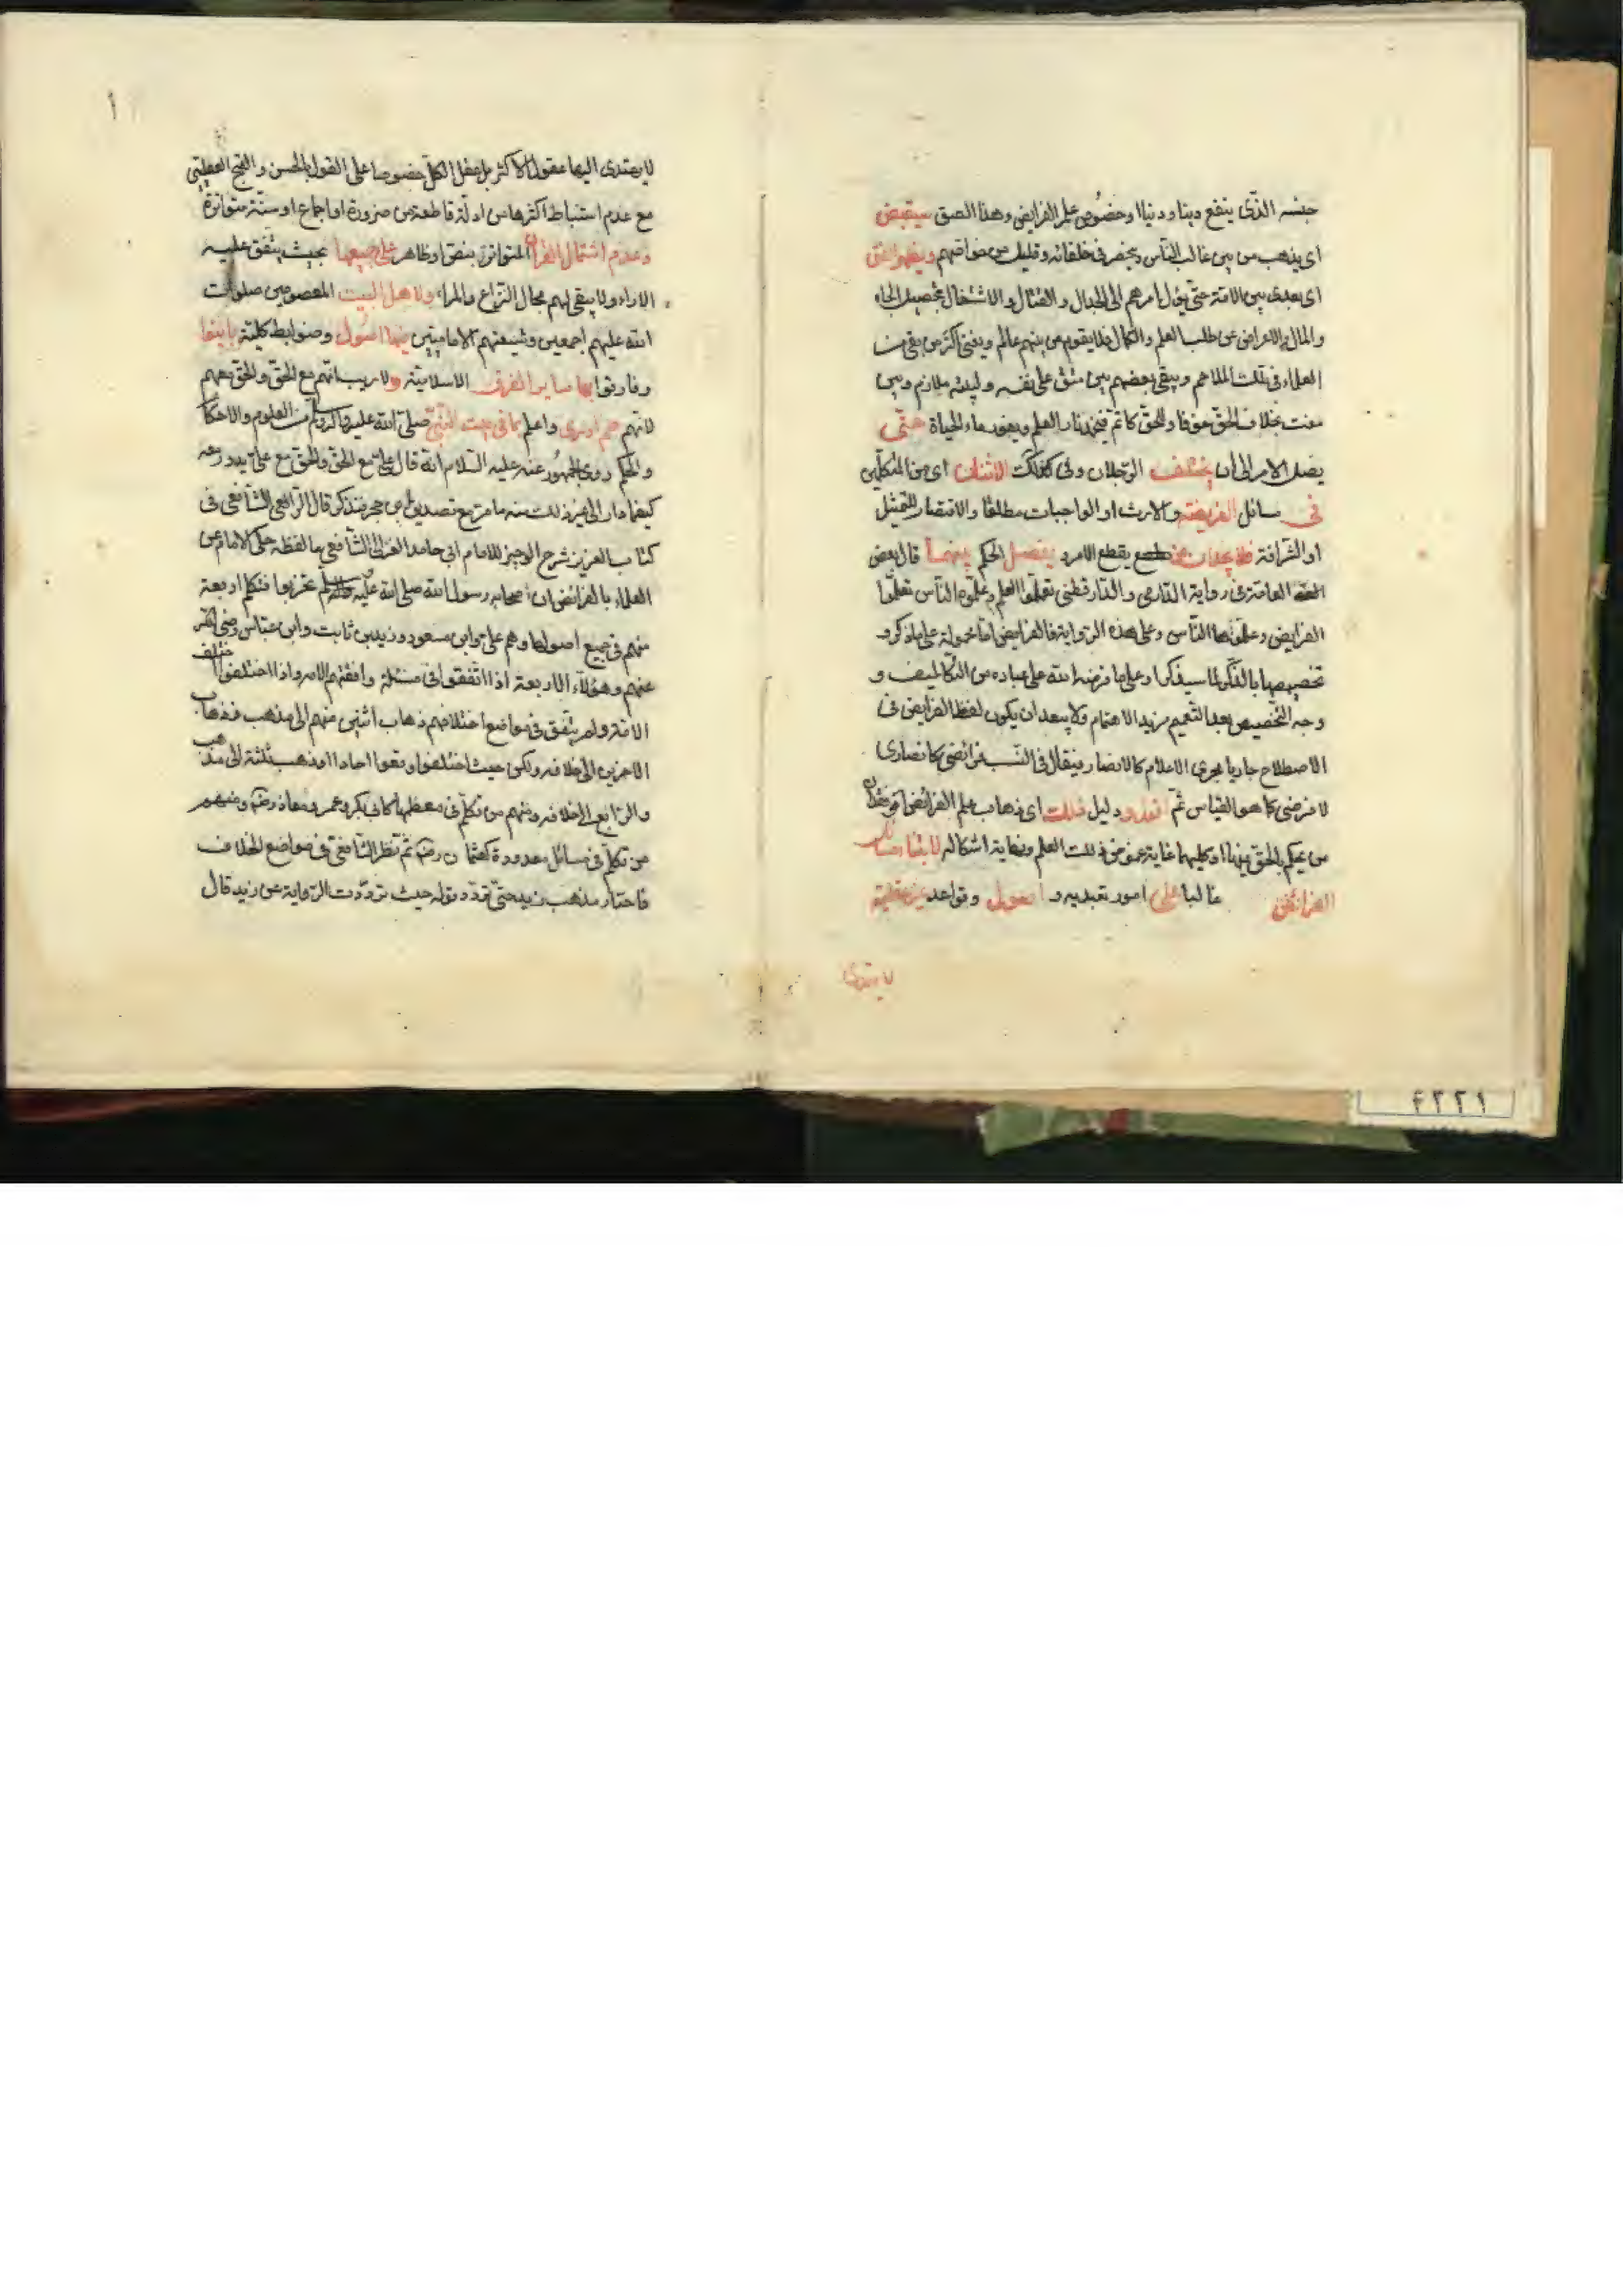 جنسه الذى ينفع دينا ودنيا او خصوص علم الفرايض وهذا الصق سيقبض
اى يذهب من بين غالب الناس وينحصر فى خلفائه وقليل من خواصهم ويظهر الفتن
اى بعدى بين الامة حتى يؤل امرهم الى الجدال والقتال والاشتغال بتحصيل الجاه
والمال والاعراض عن طلب العلم والكمال فلا يقوم من بينهم عالم ويفنى اكثر من بقى من
العلماء فى تلك الملاحم ويبقى بعضهم بين مشق على نفسه ولبيته ملازم وبين
مفت بخلاف الحق خوفا وللحق كاتم فيخمد نار العلم ويغور ماء الحياة حتى
يصل الامر الى ان يختلف الرجلان وفى الاثنان اى من المكلفين
فى مسائل الفريضة والارث او الواجبات مطلقا والاقتصار للتمثيل
او الشرافة فلا يجدان من يقطع الامر و يفصل الحكم بينهما قال بعض
العامة فى رواية الدارمى والدارقطنى تعلموا العلم وعلموه الناس تعلموا
الفرايض وعلموها الناس وعلى هذه الرواية فالفرايض اما محمولة على ما ذكر و
تخصيصها بالذكر لما سيذكر او على ما فرضه الله على عباده من التكاليف و
وجه التخصيص بعد التعميم مزيد الاهتمام ولا يبعد ان يكون لفظ الفرايض فى
الاصطلاح جاريا مجرى الاعلام كالانصار فيقال فى النسب فرائضى كانصارى
لا فرضى كما هو القياس ثم ودليل ذلك اى ذهاب علم الفرائض او فقدان
من يحكم بالحق بينهما او كليهما غاية غموض ذلك العلم ونهاية اشكاله لابتناء مسائل
الفرائض غالبا على امور تعبديه و اصول وقواعد غير عقلية
لا يهتدى
لا يهتدى اليها عقول الاكثر بل عقل الكل خصوصا على القول بالحسن والقبح العقليتى
مع عدم استنباط اكثرها من ادلة قاطعة من ضرورة او اجماع او سنة متواترة
وعدم اشتمال القران المتواتر بنص او ظاهر على جميعها بحيث يتفق عليه
الاراء ولا يبقى لهم مجال النزاع والمراء ولاهل البيت المعصومين صلوات
الله عليهم اجمعين وشيعتهم الاماميين فيها اصول وضوابط كلية باينوا
وفارقوا بها ساير الفرق الاسلامية ولا ريب انهم مع الحق والحق معهم
لانهم هم ادرى واعلم بما فى بيت النبى صلى الله عليه واله وسلم من العلوم والاحكا
والحكم روى الجمهور عنه عليه السلام انه قال على مع الحق والحق مع على يدور معه
كيفما دار الى غير ذلك منه ما مر مع تصديق ابن حجر فتذكر قال الرافعى الشافعى فى
كتاب العزيز شرح الوجيز للامام ابى حامد الغزالى الشافعى ما لفظه حكى الامام عن
العلماء بالفرائض ان اصحاب رسول الله صلى الله عليه وسلم تحزبوا فتكلم اربعة
منهم فى جميع اصولها وهم على وابن مسعود وزيد بن ثابت وابن عباس رضى الله
عنهم وهؤلاء الاربعة اذا اتفقوا فى مسئلة وافقتهم الامة واذا اختلفوا اختلف
الامة ولم يتفق فى مواضع اختلافهم ذهاب اثنين منهم الى مذهب فذهاب
الاخرين الى خلافه ولكن حيث اختلفوا وقعوا احادا او ذهب ثلثة الى مذهب
والرابع الى خلافه ومنهم من تكلم فى معظمها كابى بكر وعمر ومعاذ رضه ومنهم
من تكلم فى مسائل معدودة كعثمان رضه ثم نظر الشافعى فى مواضع الخلاف
فاختار مذهب زيد حتى تردد قوله حيث ترددت الرواية عن زيد قال